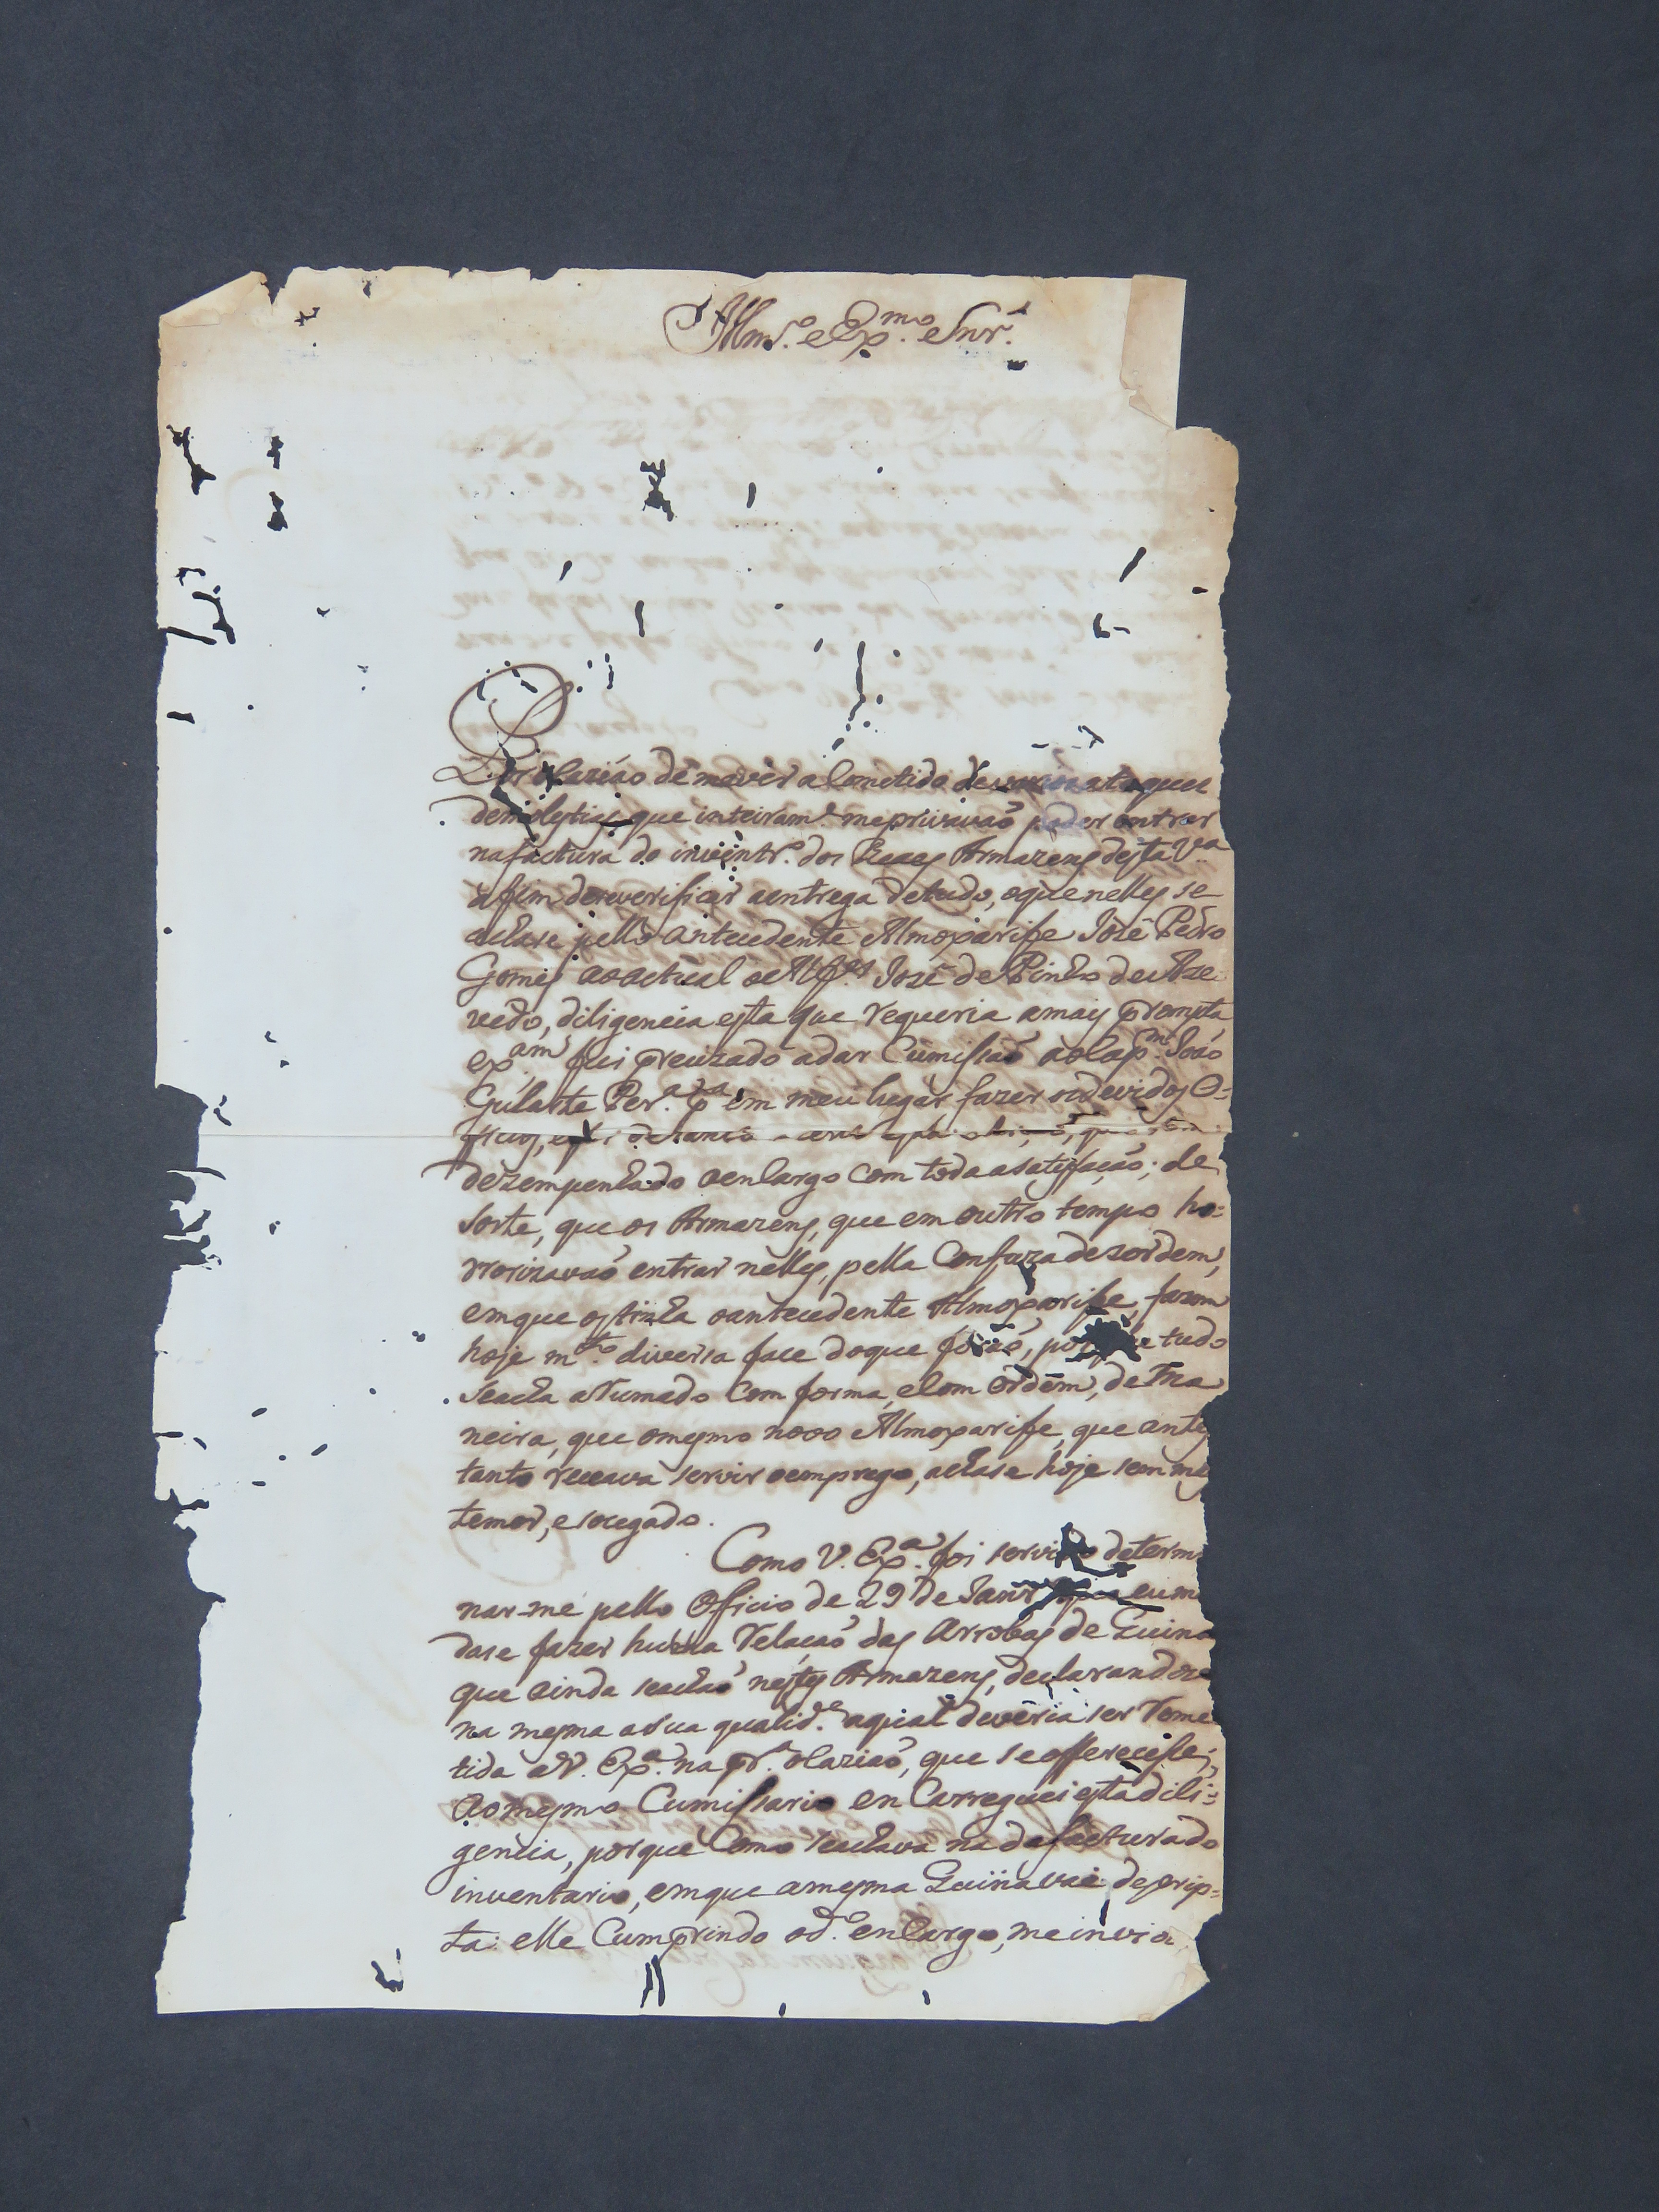 Illmº. e Exmº. Snr.
Por ocaziaõ de me ver acometido de varios ataques
de molestias, que inteiramte. me privavaõ poder entrar
na factura do inventrº. dos Reaes Armazens desta Vª
afim de se verificar a entrega de tudo, o que nelles se
achase pello antecedente Almoxarife José Pedro
Gomes ao actual o Alfes. José de Pinho de Aze
vedo, diligencia esta que requeria a mais prompta
exam fui precizado a dar Cumissaõ ao Capm. Joaõ
Gularte Perª. pª em meu lugar fazer os devidos O=
ficios,
dezempenhado o encargo com toda a satisfaçaõ; de
sorte, que os Armazens, que em outro tempo ho=
rrorizavaõ entrar nelles, pella Confuza dezordem,
em que os tinha o antecedente Almoxarife, fazem
hoje mto. diversa face do que foraõ, porque tudo
se acha arrumado com forma, e com ordem, de ma
neira, que o mesmo novo Almoxarife, que antes
tanto receava servir o emprego, achase hoje sem
temor, e socegado.
Como V. Exª. foi servido determi
nar-me pello Officio de 29 de Janrº que eu m
dase fazer huma relaçaõ das Arrobas de Quina
que ainda se achaõ nestes Armazens, declarandose
na mesma a sua qualide. a qual deveria ser reme
tida a V. Exª. na prª. ocaziaõ, que se offerecesse;
Ao mesmo Cumissario en Carreguei esta dili=
gencia, porque Como se achava na da factura do
inventario, em que a mesma Quina vai descrip=
ta: elle Cumprindo o dº. encargo, me invia